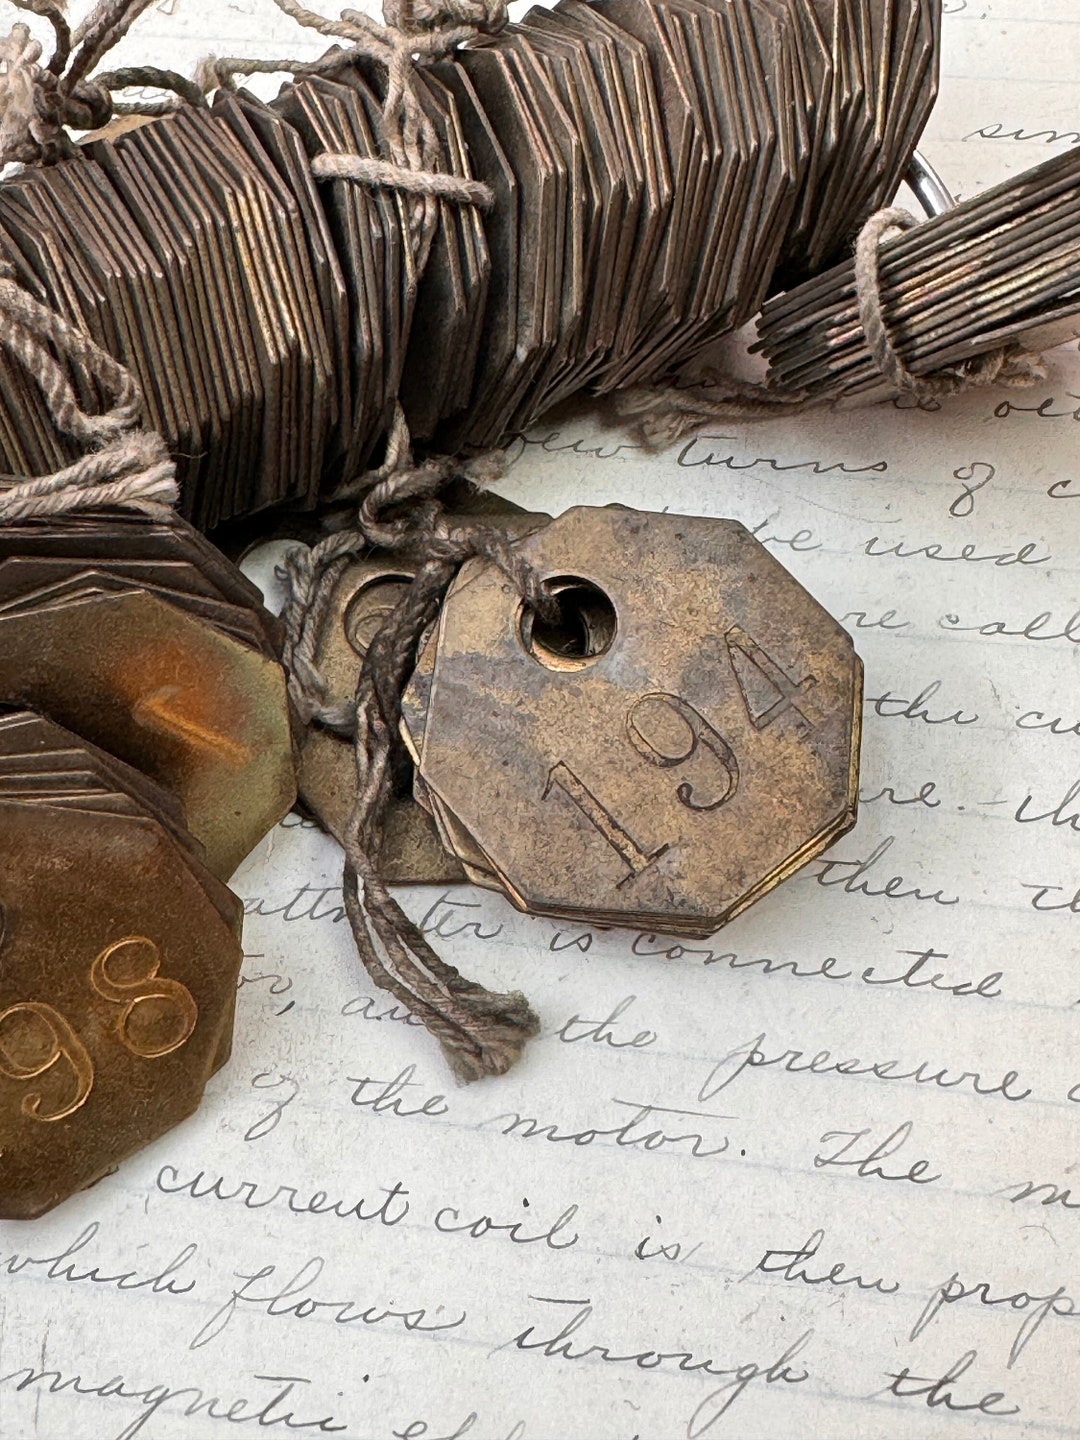 sim
few turns of c
be used
re call
194
the cu
1
are. - th
then th
98
is connected
, and the pressure
of the motor. The m
current coil is then prop
which flows through the
magnetic el